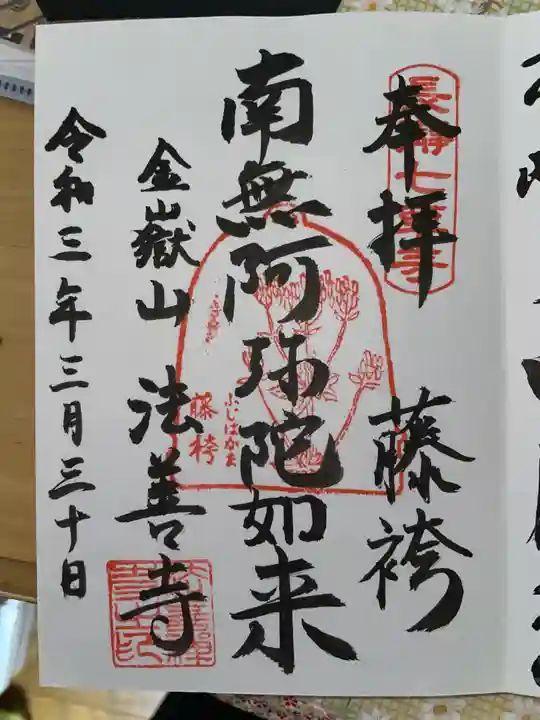 奉拝
藤袴
長瀞七草寺
南無阿弥陀如来
ふじばかま
藤袴
金嶽山 法善寺
令和三年三月三十日